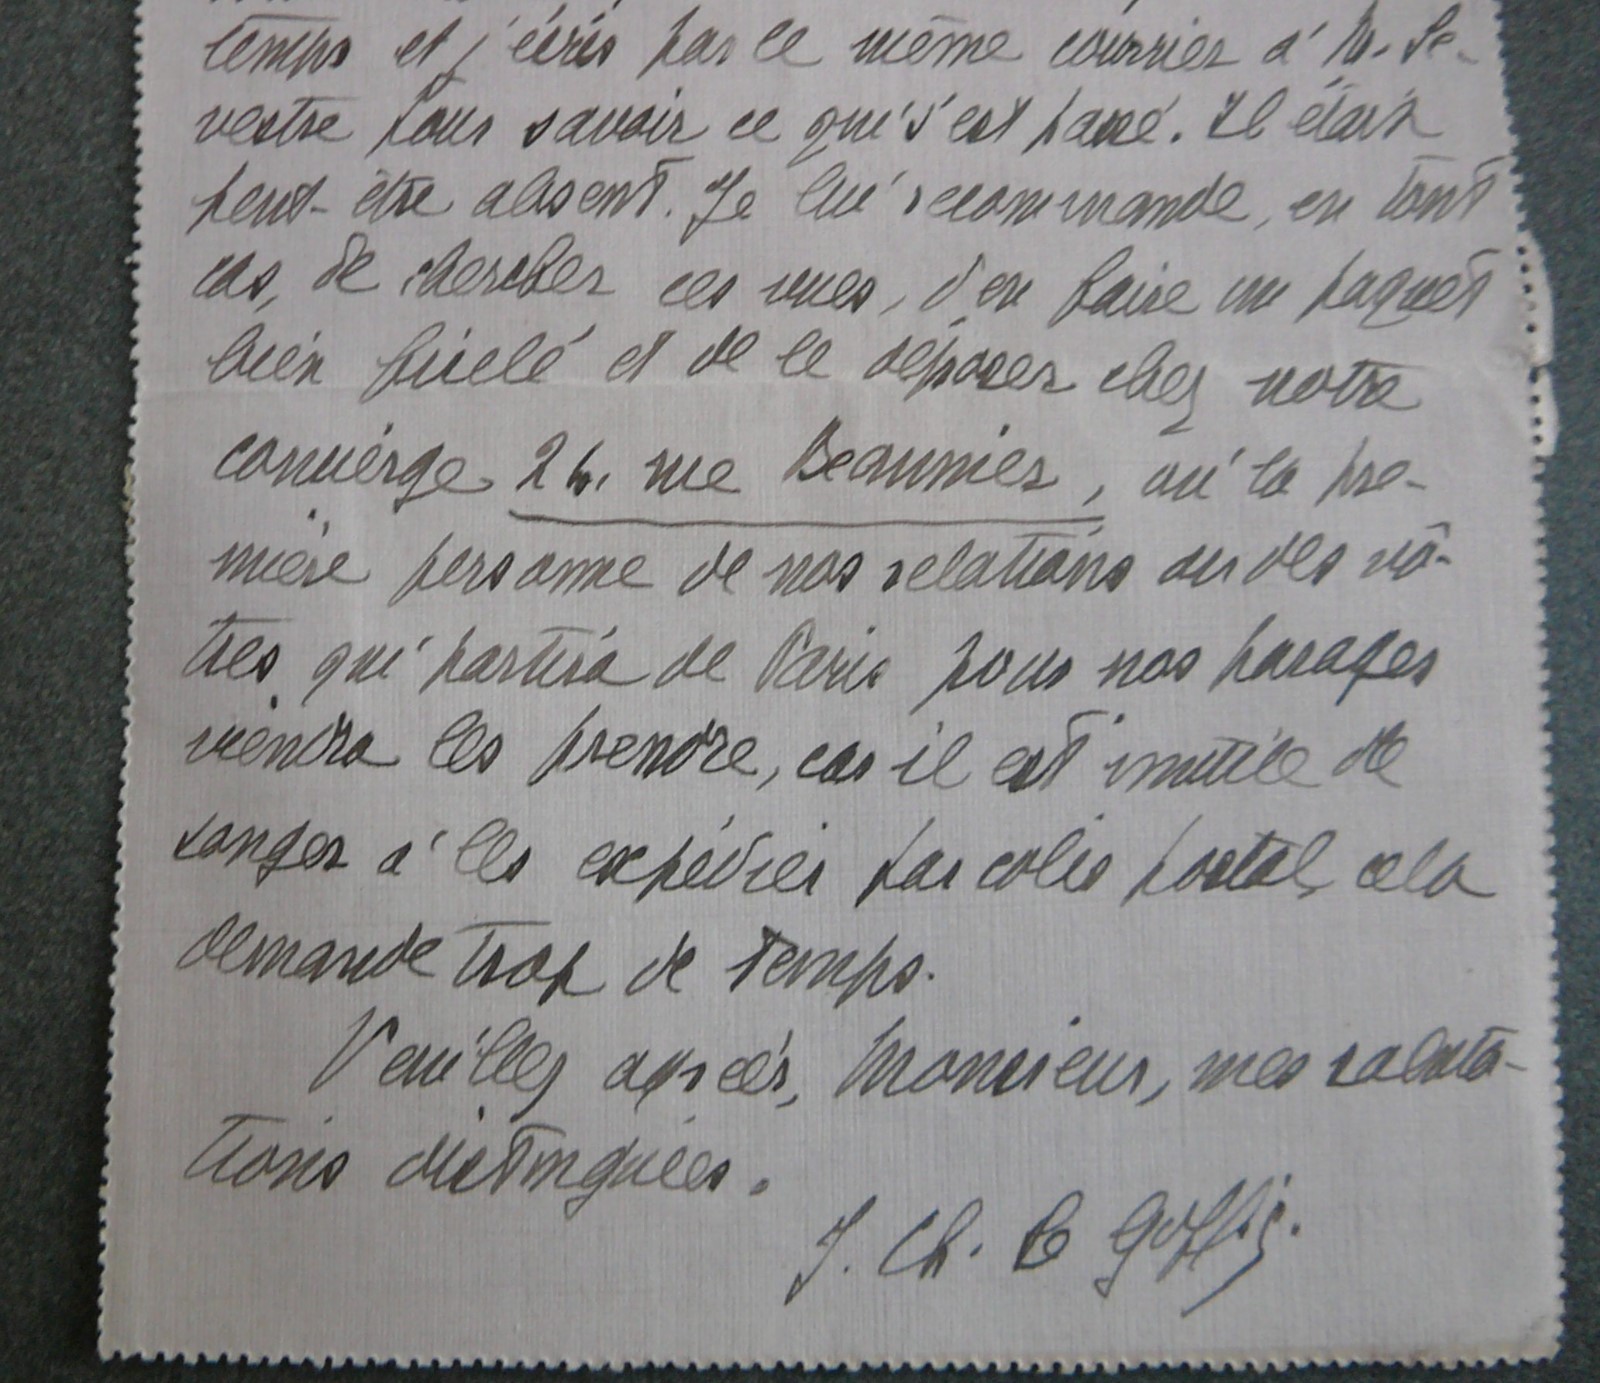 temps et j'écris par le même courrier à M. Se-
vestre pour savoir ce qui s'est passé. Il était
peut-être absent. Je lui recommande, en tout
cas, de chercher ces vues, d'en faire un paquet
bien ficelé et de le déposer chez notre
concierge 24, rue Beaunier, où la pre-
mière personne de nos relations ou des vô-
tres qui partira de Paris pour nos parages
viendra les prendre, car il est inutile de
songer à les expédier par colis postal, cela
demande trop de temps.
Veuillez agréer, Monsieur, mes saluta-
tions distinguées.
J. Ch. Le Goffic.